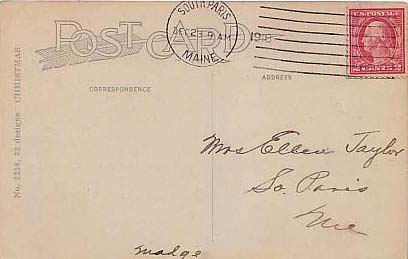 POST CARD
SOUTH PARIS
DEC 23 9 AM 1918
MAINE
U.S. POSTAGE
2 CENTS 2
CORRESPONDENCE
ADDRESS
No. 2258, 32 designs CHRISTMAS
Mrs Ellen Taylor
So. Paris
Me
Madge